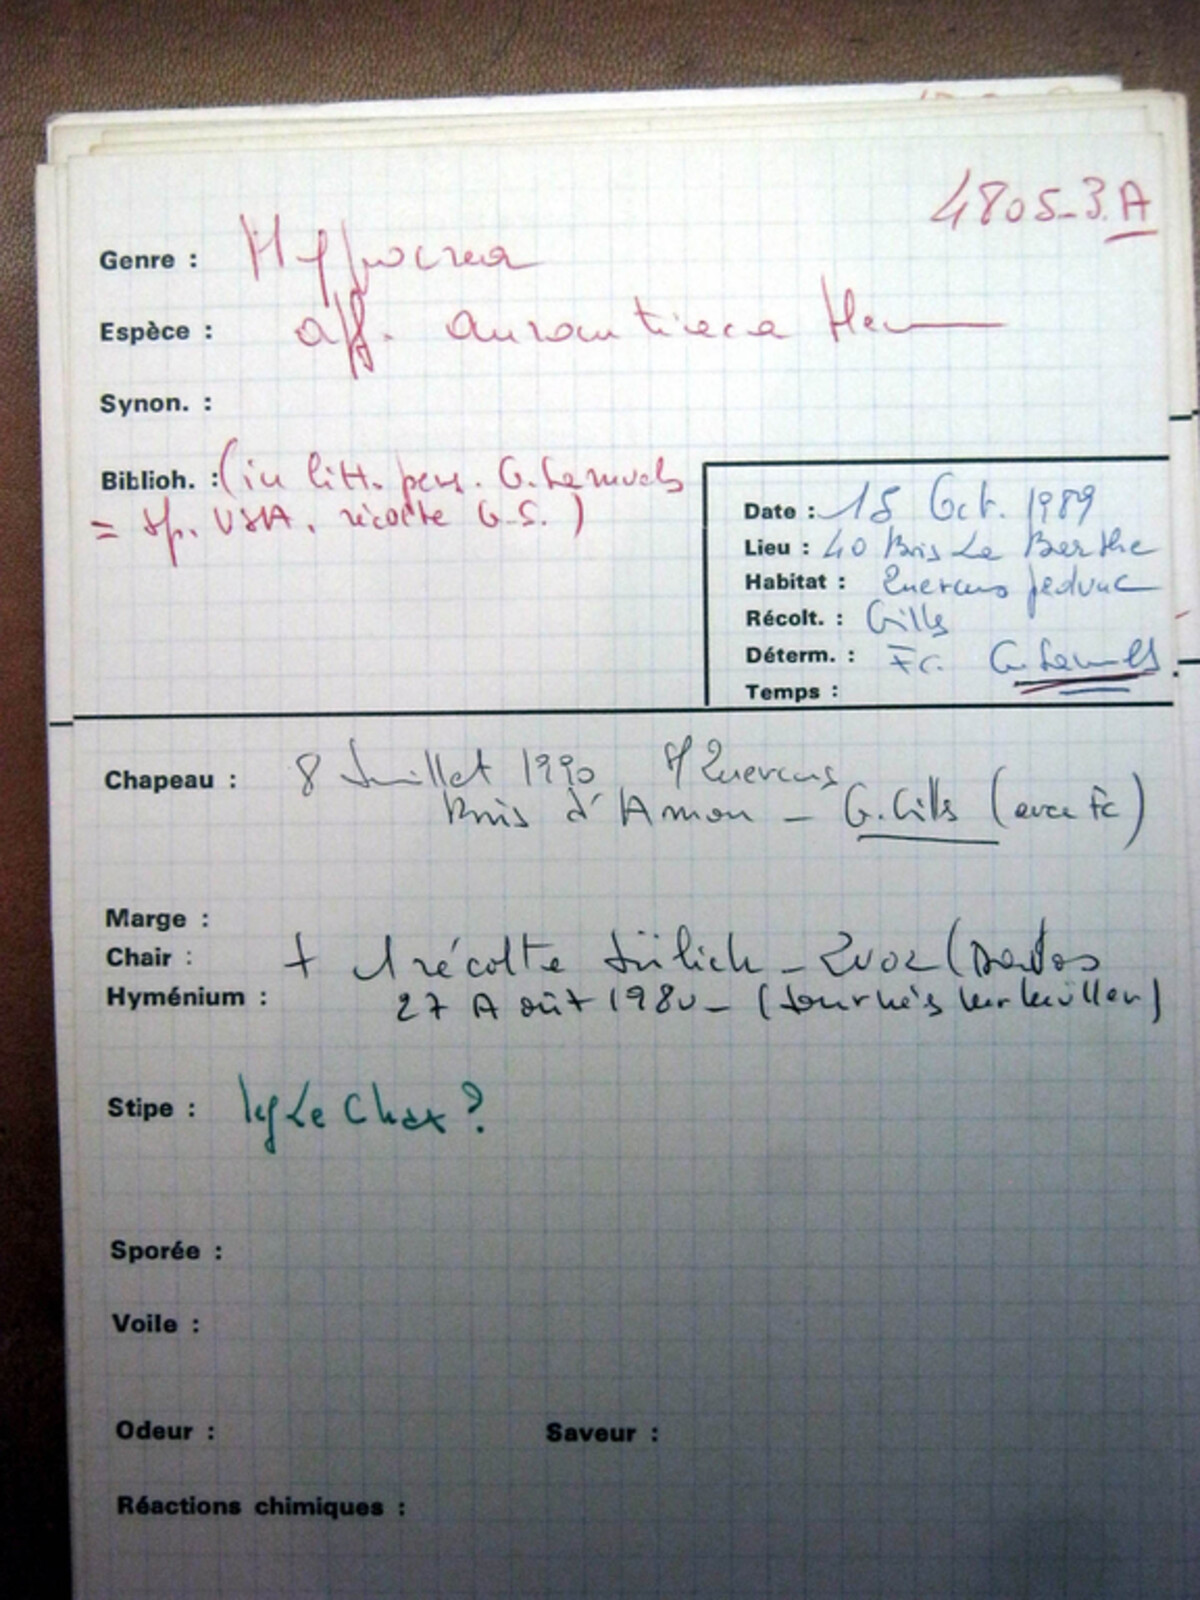 4805-3.A
Genre : Hypocrea
Espèce : aff. aurantiaca Hen
Synon. :
Biblioh. : (in litt. pers. G. Samuels
= sp. USA, récolte G.S.)
Date : 15 Oct. 1989
Lieu : 40 Bois Le Barthe
Habitat : Quercus pedunc
Récolt. : Gilles
Déterm. : FC. G. Samuels
Temps :
Chapeau : 8 Juillet 1990 Quercus
Bois d'Amou - G. Gilles (avec FC)
Marge :
Chair : + 1 récolte Jülich
Hyménium : 27 Août 1980 - (Journées
Stipe : leg Le Chat ?
Sporée :
Voile :
Odeur : Saveur :
Réactions chimiques :